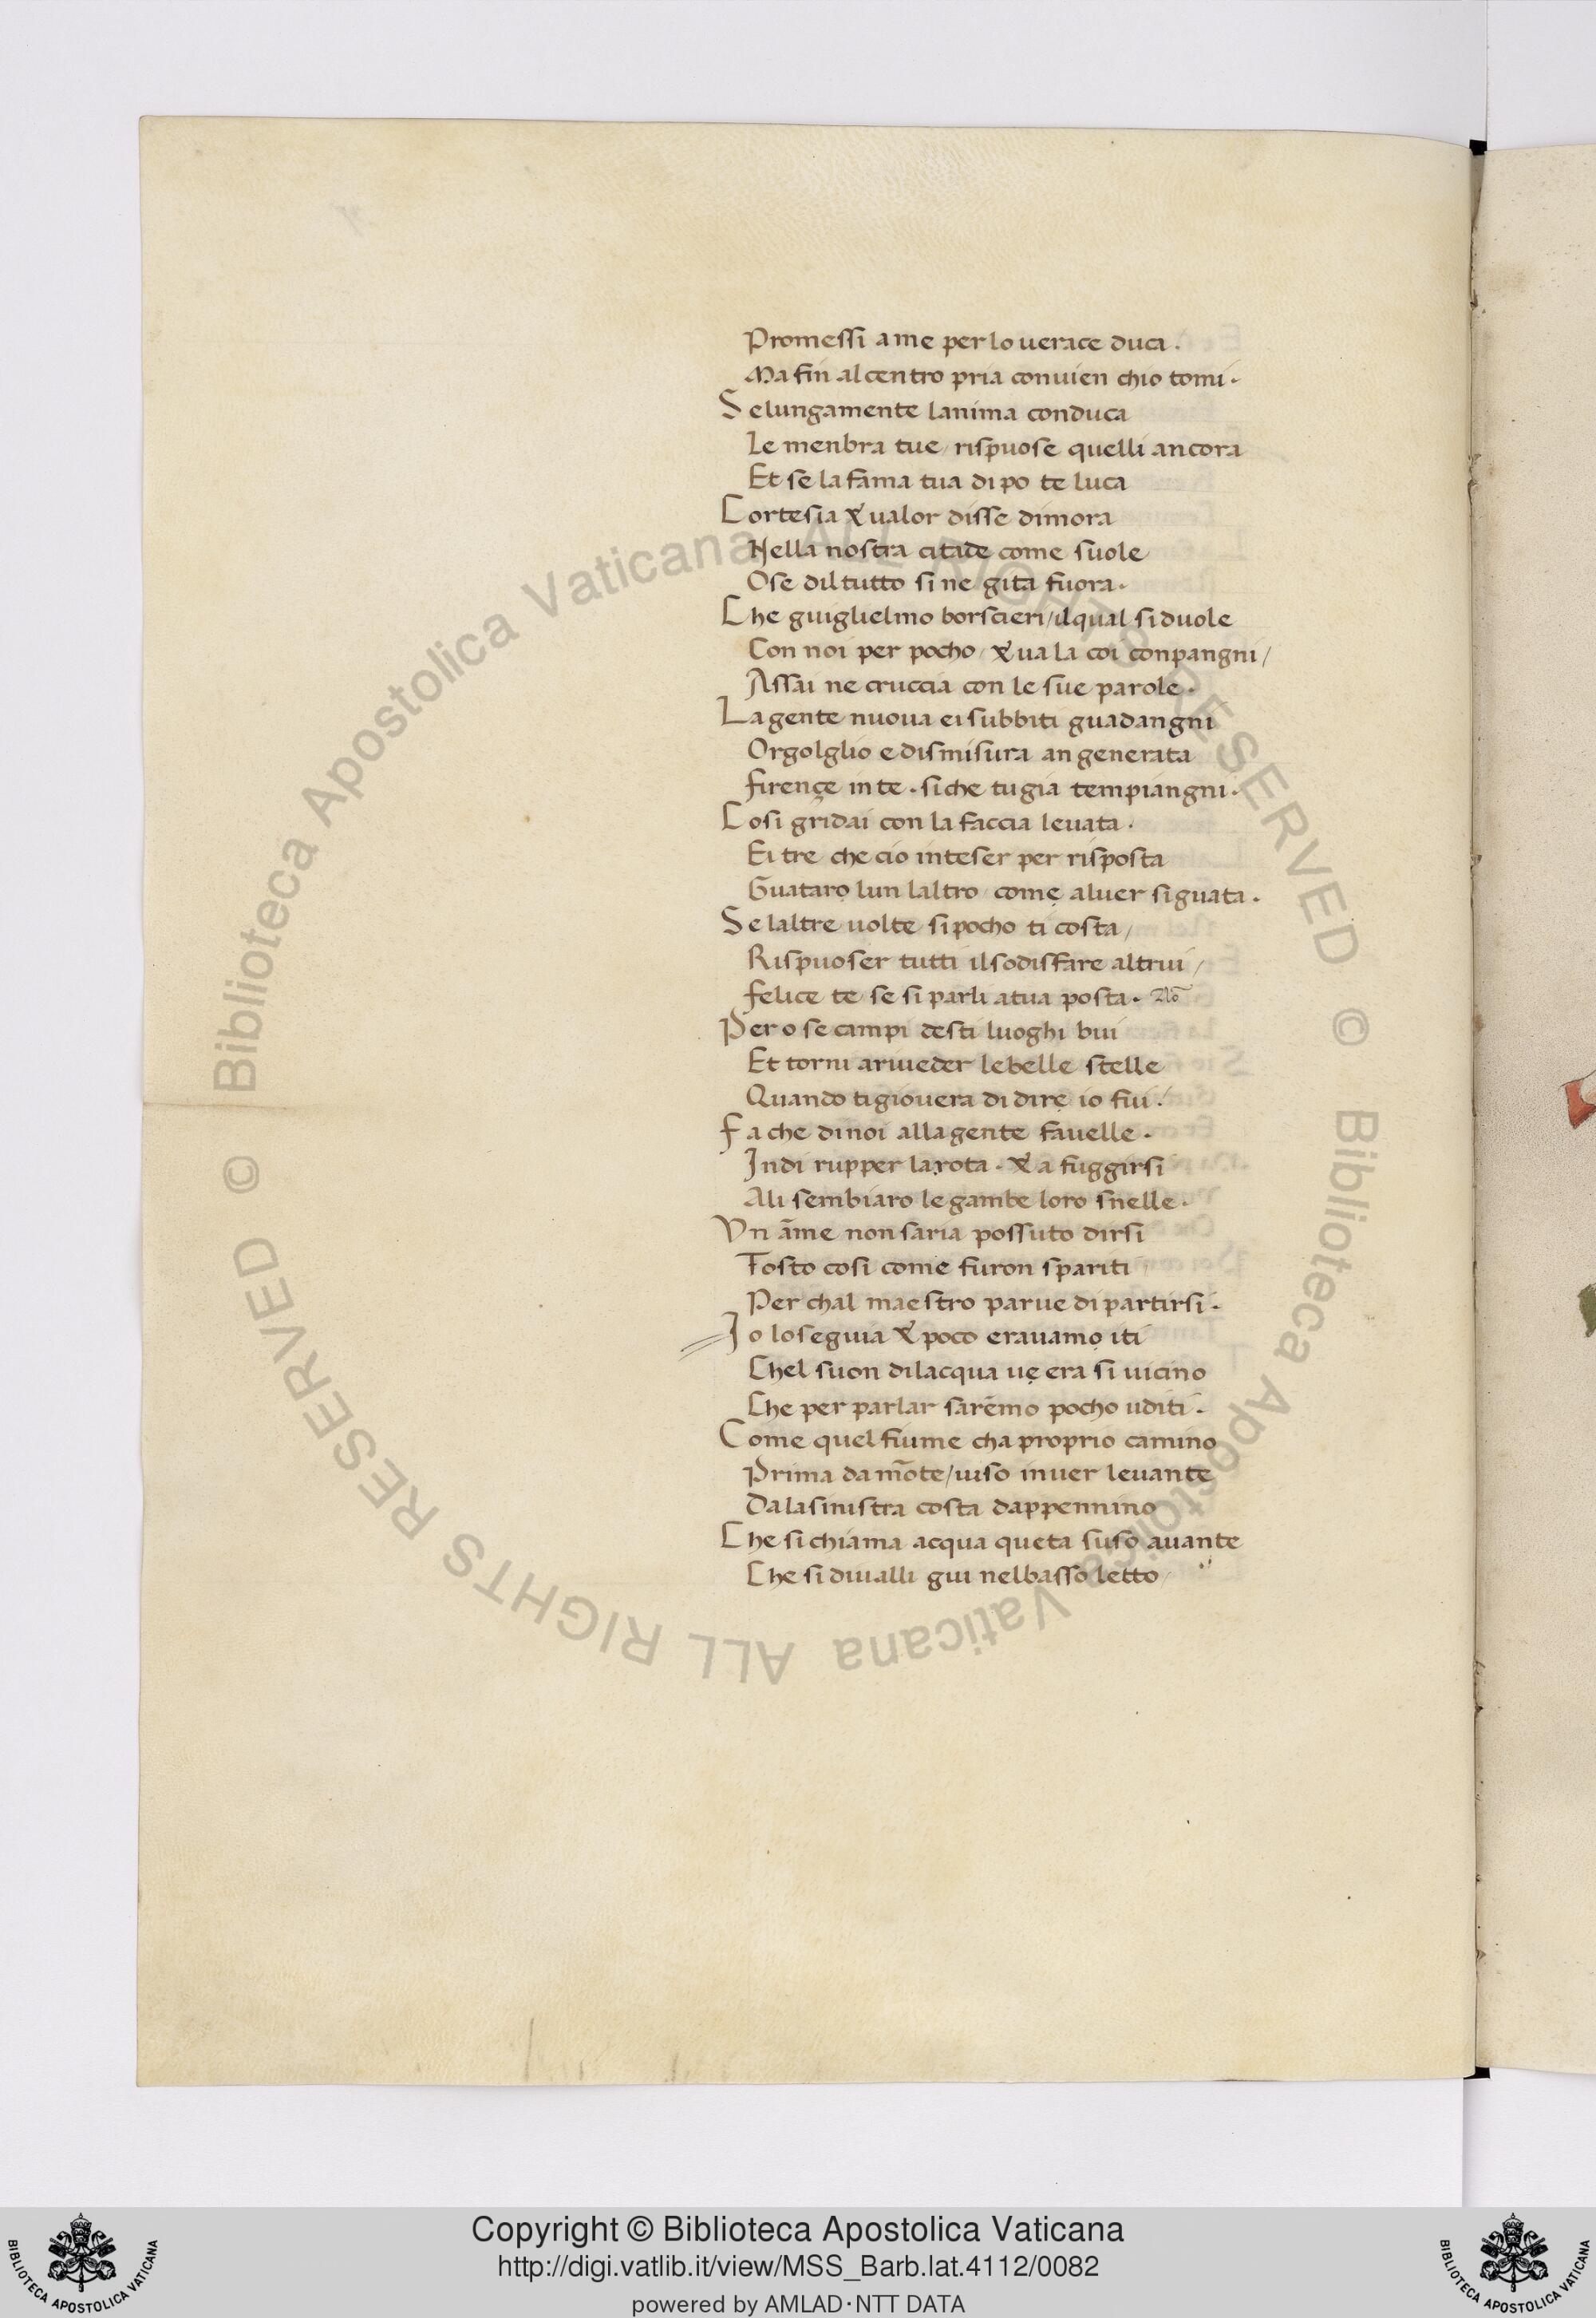 Promessi a me per lo uerace duca .
Ma fin al centro pria conuien chio tomi .
Se lungamente lanima conduca
Le menbra tue / rispuose quelli ancora
Et se la fama tua di po te luca
Cortesia & ualor disse dimora
Nella nostra citade come suole
O se dil tutto si ne gita fuora .
Che guiglielmo borscieri / il qual si duole
Con noi per pocho / & ua la coi conpangni /
Assai ne cruccia con le sue parole .
La gente nuoua ei subbiti guadangni
Orgolglio e dismisura an generata
firençe in te . si che tu gia tempiangni .
Cosi gridai con la faccia leuata .
Ei tre che cio inteser per risposta
Guatarọ lun laltro / comẹ al uer si guata .
Se laltre uolte si pocho ti costa /
Rispuoser tutti il sodisfare altrui /
felice te se si parli a tua posta . No
Pero se campi desti luoghi bui
Et torni a riueder le belle stelle
Quando ti giouera di dirẹ io fui .
Fa che di noi alla gente fauelle .
Indi rupper la rota . & a fuggirsi
Ali sembiaro le gambe loro snelle .
Vn āme non saria possuto dirsi
Tosto cosi come furon spariti
Per chal maestro parue di partirsi .
Io lo seguia & poco erauamọ iti
Chel suon dilacqua uẹ era si uicino
Che per parlar sarēmo pocho uditi .
Come quel fiume cha proprio camino
Prima da mōte / uiso inuer leuante
Da la sinistra costa dappennino
Che si chiama acqua queta suso auante
Che si diualli giu nel basso letto
© Biblioteca Apostolica Vaticana ALL RIGHTS RESERVED
© Biblioteca Apostolica Vaticana ALL RIGHTS RESERVED
Copyright © Biblioteca Apostolica Vaticana
http://digi.vatlib.it/view/MSS_Barb.lat.4112/0082
powered by AMLAD·NTT DATA
BIBLIOTECA APOSTOLICA VATICANA
BIBLIOTECA APOSTOLICA VATICANA